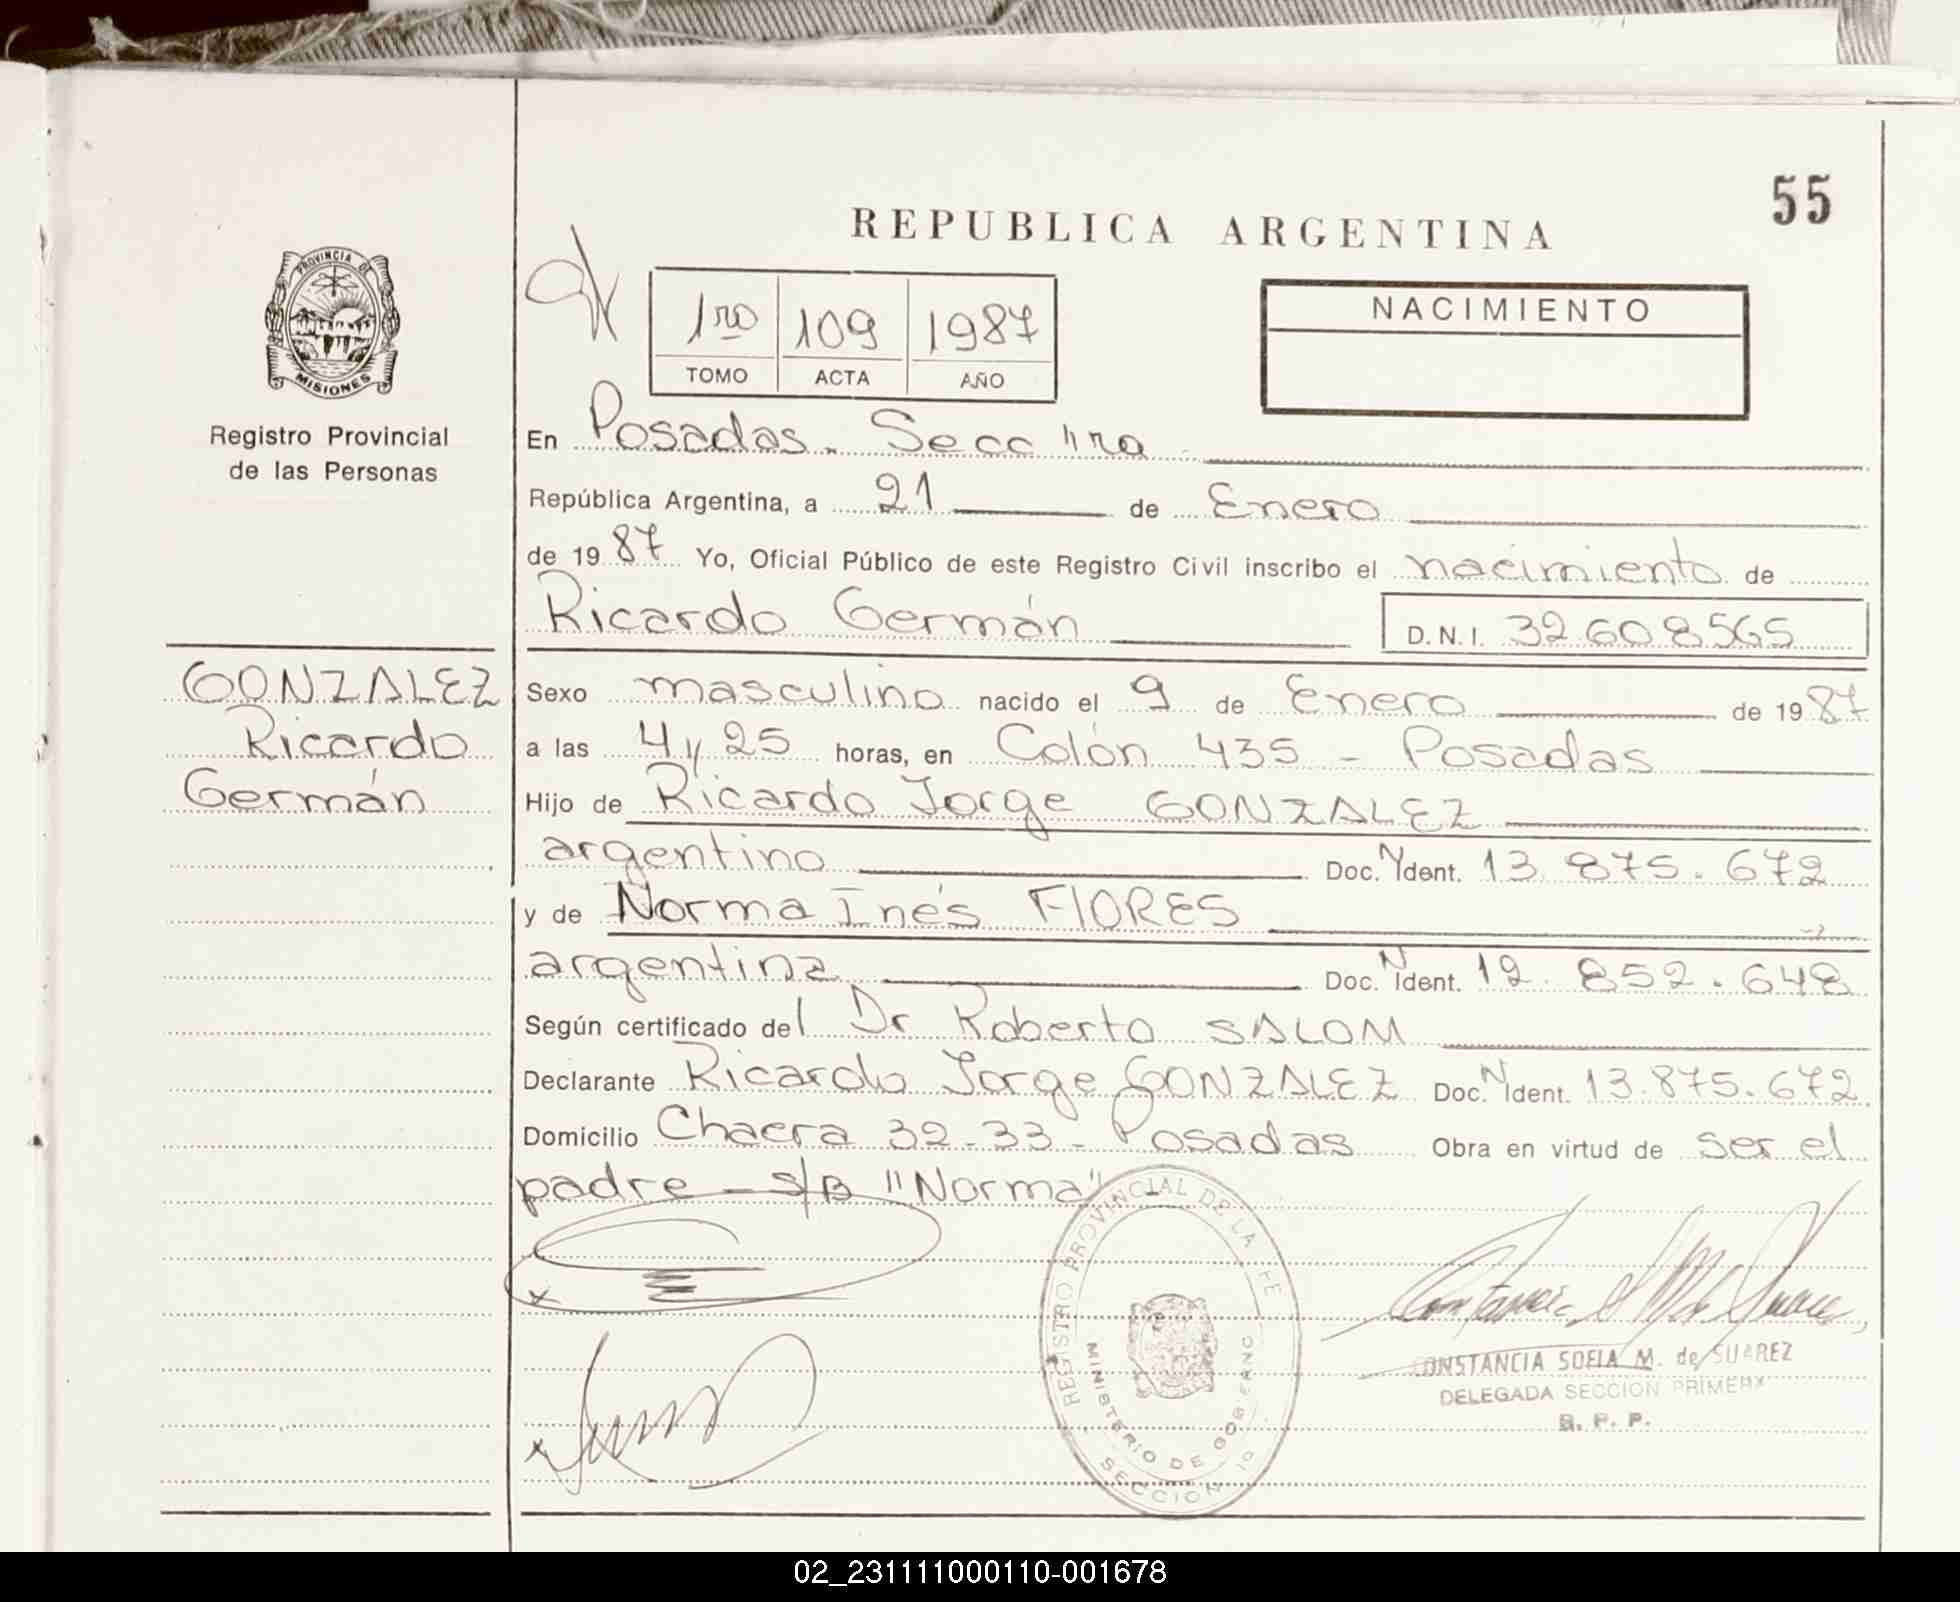 55
REPUBLICA ARGENTINA
PROVINCIA DE
MISIONES
Registro Provincial
de las Personas
1ro 109 1987
TOMO ACTA AÑO
NACIMIENTO
En Posadas. Secc "ra
República Argentina, a 21 de Enero
de 19 87 Yo, Oficial Público de este Registro Civil inscribo el nacimiento de
Ricardo Germán D.N.I. 32.608565
GONZALEZ
Ricardo
Germán
Sexo masculino nacido el 9 de Enero de 19 87
a las 4 y 25 horas, en Colón 435 - Posadas
Hijo de Ricardo Jorge GONZALEZ
argentino Doc. N Ident. 13.875.672
y de Norma Inés FlORES
argentina Doc. N Ident. 12.852.648
Según certificado del Dr Roberto SALOM
Declarante Ricardo Jorge GONZALEZ Doc. N Ident. 13.875.672
Domicilio Chacra 32-33 - Posadas Obra en virtud de ser el
padre - s/B "Norma"
REGISTRO PROVINCIAL DE LA
MINISTERIO DE GOBIERNO
SECCION
CONSTANCIA SOFIA M. de SUAREZ
DELEGADA SECCION PRIMERA
R. P. P.
02_231111000110-001678